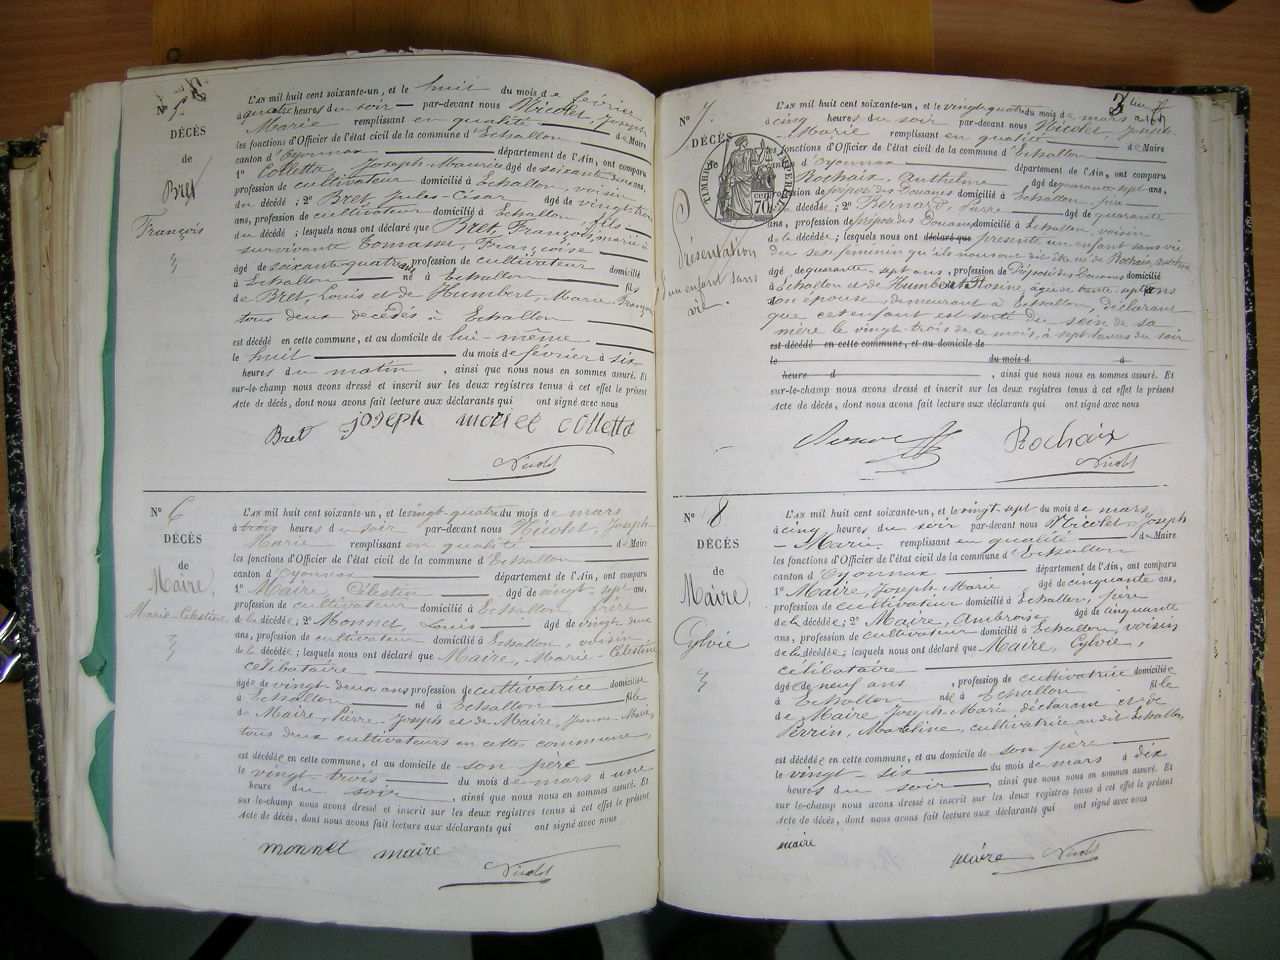 N° 5
DÉCÈS
de
Bret
François
L'AN mil huit cent soixante-un, et le huit du mois de février
à quatre heures du soir par-devant nous Nicolet, Joseph
Marie remplissant en qualité de Maire
les fonctions d'Officier de l'état civil de la commune d'Echallon
canton d'Oyonnax département de l'Ain, ont comparu
1° Colletta, Joseph-Maurice âgé de soixante ans,
profession de cultivateur domicilié à Echallon, voisin
du décédé ; 2° Bret, Jules-César âgé de vingt-trois
ans, profession de cultivateur domicilié à Echallon, fils
du décédé ; lesquels nous ont déclaré que Bret, François, marié à
survivante Tomasset, Françoise
âgé de soixante-quatre ans, profession de cultivateur domicilié
à Echallon né à Echallon fils
de Bret, Louis et de Humbert, Marie Françoise
tous deux décédés à Echallon
est décédé en cette commune, et au domicile de lui-même
le huit du mois de février à six
heures du matin, ainsi que nous nous en sommes assuré. Et
sur-le-champ nous avons dressé et inscrit sur les deux registres tenus à cet effet le présent
Acte de décès, dont nous avons fait lecture aux déclarants qui ont signé avec nous
Bret joseph moriet colletta
Nicolet
N° 6
DÉCÈS
de
Maire,
Marie-Célestine
L'AN mil huit cent soixante-un, et le vingt-quatre du mois de mars
à trois heures du soir par-devant nous Nicolet, Joseph-
Marie remplissant en qualité de Maire
les fonctions d'Officier de l'état civil de la commune d'Echallon
canton d'Oyonnax département de l'Ain, ont comparu
1° Maire, Célestin âgé de vingt-sept ans,
profession de cultivateur domicilié à Echallon, frère
de la décédée ; 2° Monnet, Louis âgé de vingt
ans, profession de cultivateur domicilié à Echallon, voisin
de la décédée ; lesquels nous ont déclaré que Maire, Marie-Célestine
célibataire
âgée de vingt deux ans profession de cultivatrice domiciliée
à Echallon née à Echallon fille
de Maire, Pierre-Joseph et de Maire, Jeanne-Marie,
tous deux cultivateurs en cette commune,
est décédée en cette commune, et au domicile de son père
le vingt-trois du mois de mars à une
heure du soir, ainsi que nous nous en sommes assuré. Et
sur-le-champ nous avons dressé et inscrit sur les deux registres tenus à cet effet le présent
Acte de décès, dont nous avons fait lecture aux déclarants qui ont signé avec nous
monnet maire
Nicolet
3
N° 7
DÉCÈS
de
TIMBRE IMPÉRIAL
70
Présentation
d'un enfant sans
vie
L'AN mil huit cent soixante-un, et le vingt-quatre du mois de mars
à cinq heures du soir par-devant nous Nicolet, Joseph
Marie remplissant en qualité de Maire
les fonctions d'Officier de l'état civil de la commune d'Echallon
canton d'Oyonnax département de l'Ain, ont comparu
Rochaix, Anthelme âgé de quarante sept ans,
profession de préposé des Douanes domicilié à Echallon, père
du décédé ; 2° Bernard, Pierre âgé de quarante
ans, profession de préposé des Douanes, domicilié à Echallon, voisin
de la décédée ; lesquels nous ont déclaré que présenté un enfant sans vie
du sexe féminin qu'ils nous ont dit être né de Rochaix, Anthelme
âgé de quarante-sept ans, profession de Préposé des Douanes domicilié
à Echallon et de Humbert Rosine, âgée de trente-sept ans
son épouse, demeurant à Echallon, déclarant
que cet enfant est sorti du sein de sa
mère le vingt-trois de ce mois, à sept heures du soir
est décédé en cette commune, et au domicile de
le du mois d à
heure d, ainsi que nous nous en sommes assuré. Et
sur-le-champ nous avons dressé et inscrit sur les deux registres tenus à cet effet le présent
Acte de décès, dont nous avons fait lecture aux déclarants qui ont signé avec nous
Rochaix
Nicolet
N° 8
DÉCÈS
de
Maire,
Cylvie
L'AN mil huit cent soixante-un, et le vingt sept du mois de mars
à cinq heures du soir par-devant nous Nicolet, Joseph
-Marie remplissant en qualité de Maire
les fonctions d'Officier de l'état civil de la commune d'Echallon
canton d'Oyonnax département de l'Ain, ont comparu
1° Maire, Joseph-Marie âgé de cinquante ans,
profession de cultivateur domicilié à Echallon, père
de la décédée ; 2° Maire, Ambroise âgé de cinquante
ans, profession de cultivateur domicilié à Echallon, voisin
de la décédée ; lesquels nous ont déclaré que Maire, Cylvie,
célibataire
âgée de neuf ans, profession de cultivatrice domiciliée
à Echallon née à Echallon fille
de Maire, Joseph-Marie déclarant et de
Perrin, Madeline, cultivatrice au dit Echallon,
est décédée en cette commune, et au domicile de son père
le vingt-six du mois de mars à dix
heures du soir, ainsi que nous nous en sommes assuré. Et
sur-le-champ nous avons dressé et inscrit sur les deux registres tenus à cet effet le présent
Acte de décès, dont nous avons fait lecture aux déclarants qui ont signé avec nous
maire
maire Nicolet